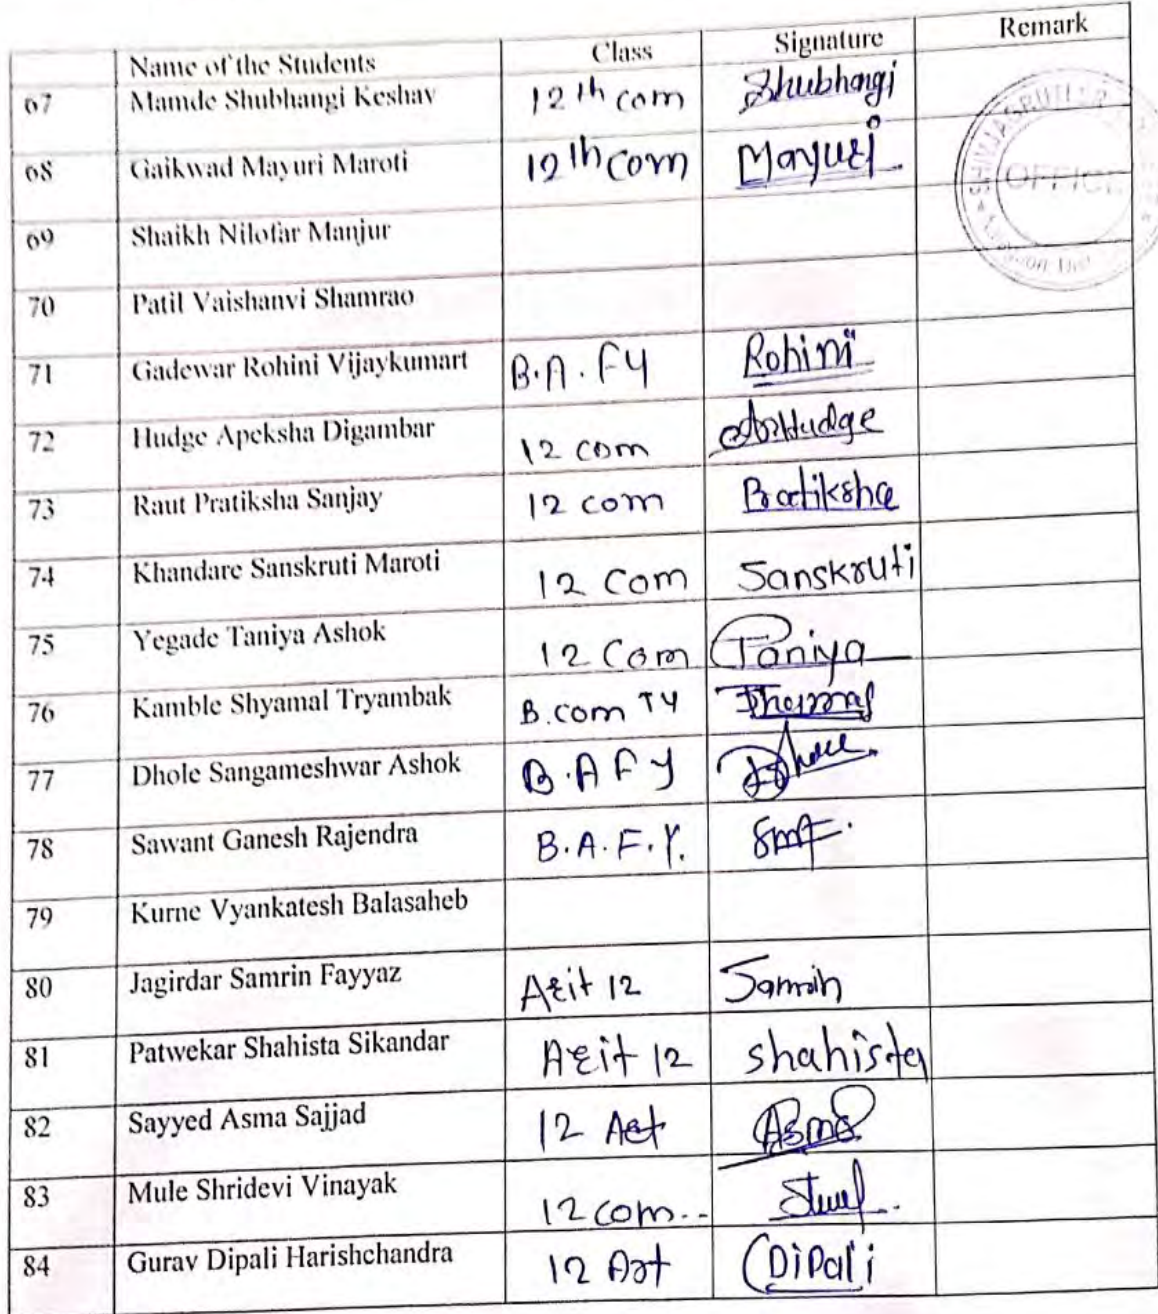 Name of the Students Class Signature Remark
67 Mamde Shubhangi Keshav 12th com Shubhangi
68 Gaikwad Mayuri Maroti 12th com Mayuri
69 Shaikh Nilofar Manjur
70 Patil Vaishanvi Shamrao
71 Gadewar Rohini Vijaykumart B.A. FY Rohini
72 Hudge Apeksha Digambar 12 com
73 Raut Pratiksha Sanjay 12 com Pratiksha
74 Khandare Sanskruti Maroti 12 Com Sanskruti
75 Yegade Taniya Ashok 12 Com Taniya
76 Kamble Shyamal Tryambak B.com TY
77 Dhole Sangameshwar Ashok B.A FY
78 Sawant Ganesh Rajendra B.A.F.Y.
79 Kurne Vyankatesh Balasaheb
80 Jagirdar Samrin Fayyaz 12 Samrin
81 Patwekar Shahista Sikandar 12 shahista
82 Sayyed Asma Sajjad 12 Art Asma
83 Mule Shridevi Vinayak 12 com..
84 Gurav Dipali Harishchandra 12 Art Dipali
OFFICE